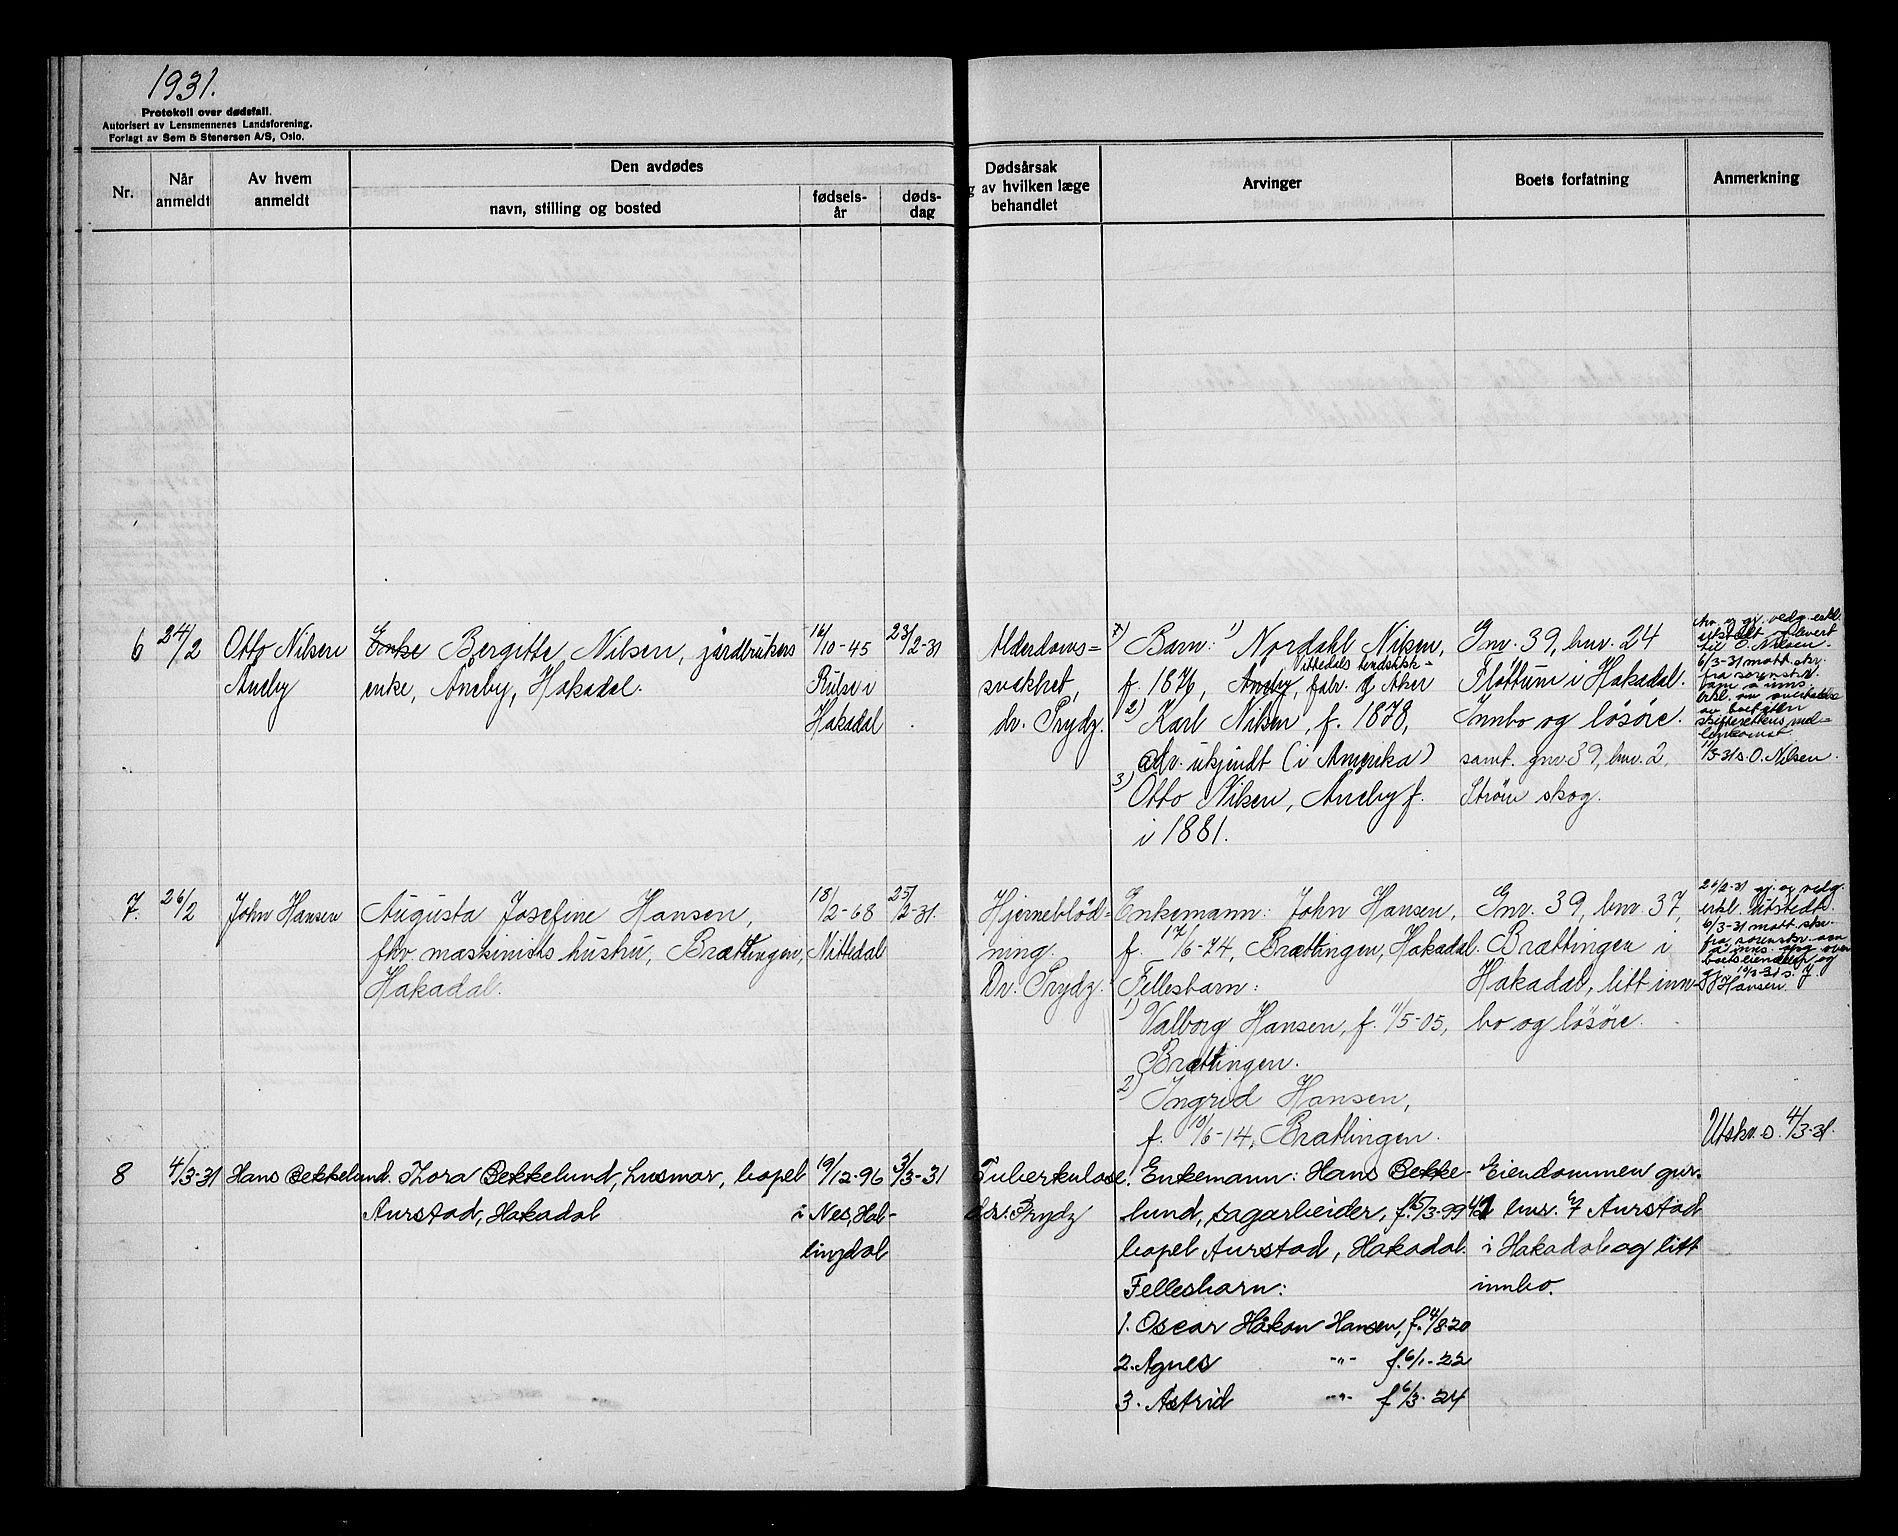 1931.
Protokoll over dødsfall.
Autorisert av Lensmennenes Landsforening.
Forlagt av Sem & Stenersen A/S, Oslo.
Nr.
Når anmeldt
Av hvem anmeldt
Den avdødes
navn, stilling og bosted
fødsels-år
døds-dag
Dødsårsak
g av hvilken læge
behandlet
Arvinger
Boets forfatning
Anmerkning
6
24/2
Otto Nilsen
Aneby
Enke Bergitte Nilsen, jordbrukers
enke, Aneby, Hakadal.
16/10-45
Rulse i
Hakadal
23/2-31
Alderdoms=
svakhet,
dr. Prydz.
Barn: 1) Nordahl Nilsen,
f. 1876, Aneby, fabr.
2) Karl Nilsen, f. 1878,
adr. ukjendt (i Amerika)
3) Otto Nilsen, Aneby f.
i 1881.
Gnr. 39, bnr. 24
Fløttum i Hakadal.
Innbo og løsøre.
samt. gnr. 39, bnr. 2,
Strøm skog.
til O. Nilsen.
6/3-31 mott. skr.
fra sorenskr.
11/3-31 s. O. Nilsen.
7.
26/2
John Hansen
Augusta Josefine Hansen,
fhv. maskinists hustru, Brættingen,
Hakadal.
18/2-68
Nittedal
25/2-31.
Hjerneblød=
ning.
Dr. Prydz.
Enkemann: John Hansen,
f. 17/6-74, Brættingen, Hakadal.
Fellesbarn:
1) Valborg Hansen, f. 11/5-05,
Brættingen.
2) Ingrid Hansen,
f. 10/6-14, Brættingen.
Gnr. 39, bnr. 37,
Brættingen i
Hakadal, litt inn-
bo og løsøre.
26/2-31 gj. og vedg.
erkl. utstedt.
6/3-31 mott. skr.
fra sorenskr. om
boets eiendeler og
gj. 10/3-31 s. J.
Hansen.
8
4/3-31
Hans Bekkelund.
Thora Bekkelund, husmor, bopel
Aurstad, Hakadal
19/12-96
i Nes, Hal-
lingdal
3/3-31
Tuberkulose.
dr. Prydz
Enkemann: Hans Bekke-
lund, sagarbeider, f. 15/3-99
bopel Aurstad, Hakadal.
Fellesbarn:
1. Oscar Håkon Hansen, f. 4/8-20
2. Agnes -"- f. 6/1-22
3. Astrid -"- f. 6/3-24
Eiendommen gnr.
42 bnr. 7 Aurstad
i Hakadal og litt
innbo.
Utskr. s. 4/3-31.